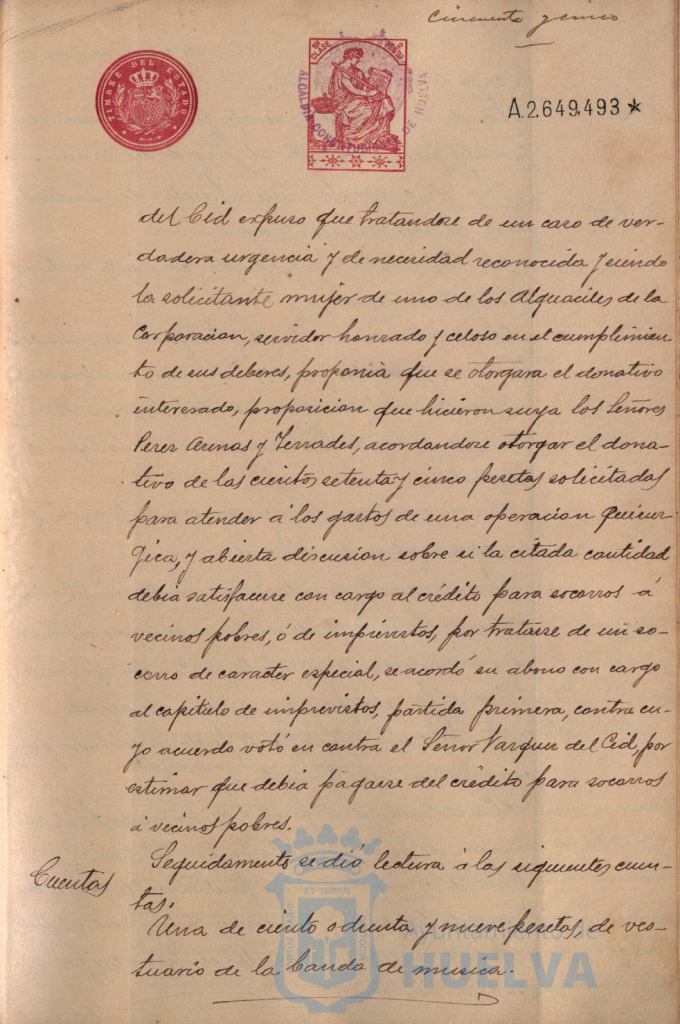 Cincuenta y cinco
TIMBRE DEL ESTADO
10ª CLASE
2 PESETAS
ALCALDIA CONSTITUCIONAL DE HUELVA
A.2.649.493 *
del Cid expuso que tratandose de un caso de ver-
dadera urgencia y de necesidad reconocida y siendo
la solicitante mujer de uno de los Alguaciles de la
Corporacion, servidor honrado y celoso en el cumplimien-
to de sus deberes, proponia que se otorgara el donativo
interesado, proposicion que hicieron suya los Señores
Perez Arenas y Terrades, acordandose otorgar el dona-
tivo de las ciento setenta y cinco pesetas solicitadas
para atender á los gastos de una operacion quirur-
gica, y abierta discusion sobre si la citada cantidad
debia satisfacerse con cargo al crédito para socorros á
vecinos pobres, ó de imprevistos, por tratarse de un so-
corro de caracter especial, se acordó su abono con cargo
al capitulo de imprevistos, partida primera, contra cu-
yo acuerdo votó en contra el Señor Vazquez del Cid, por
estimar que debia pagarse del crédito para socorros
á vecinos pobres.
Cuentas
Seguidamente se dió lectura á las siguientes cuen-
tas.
Una de ciento ochenta y nueve pesetas, de ves-
tuario de la banda de musica.
Ayuntamiento de
HUELVA